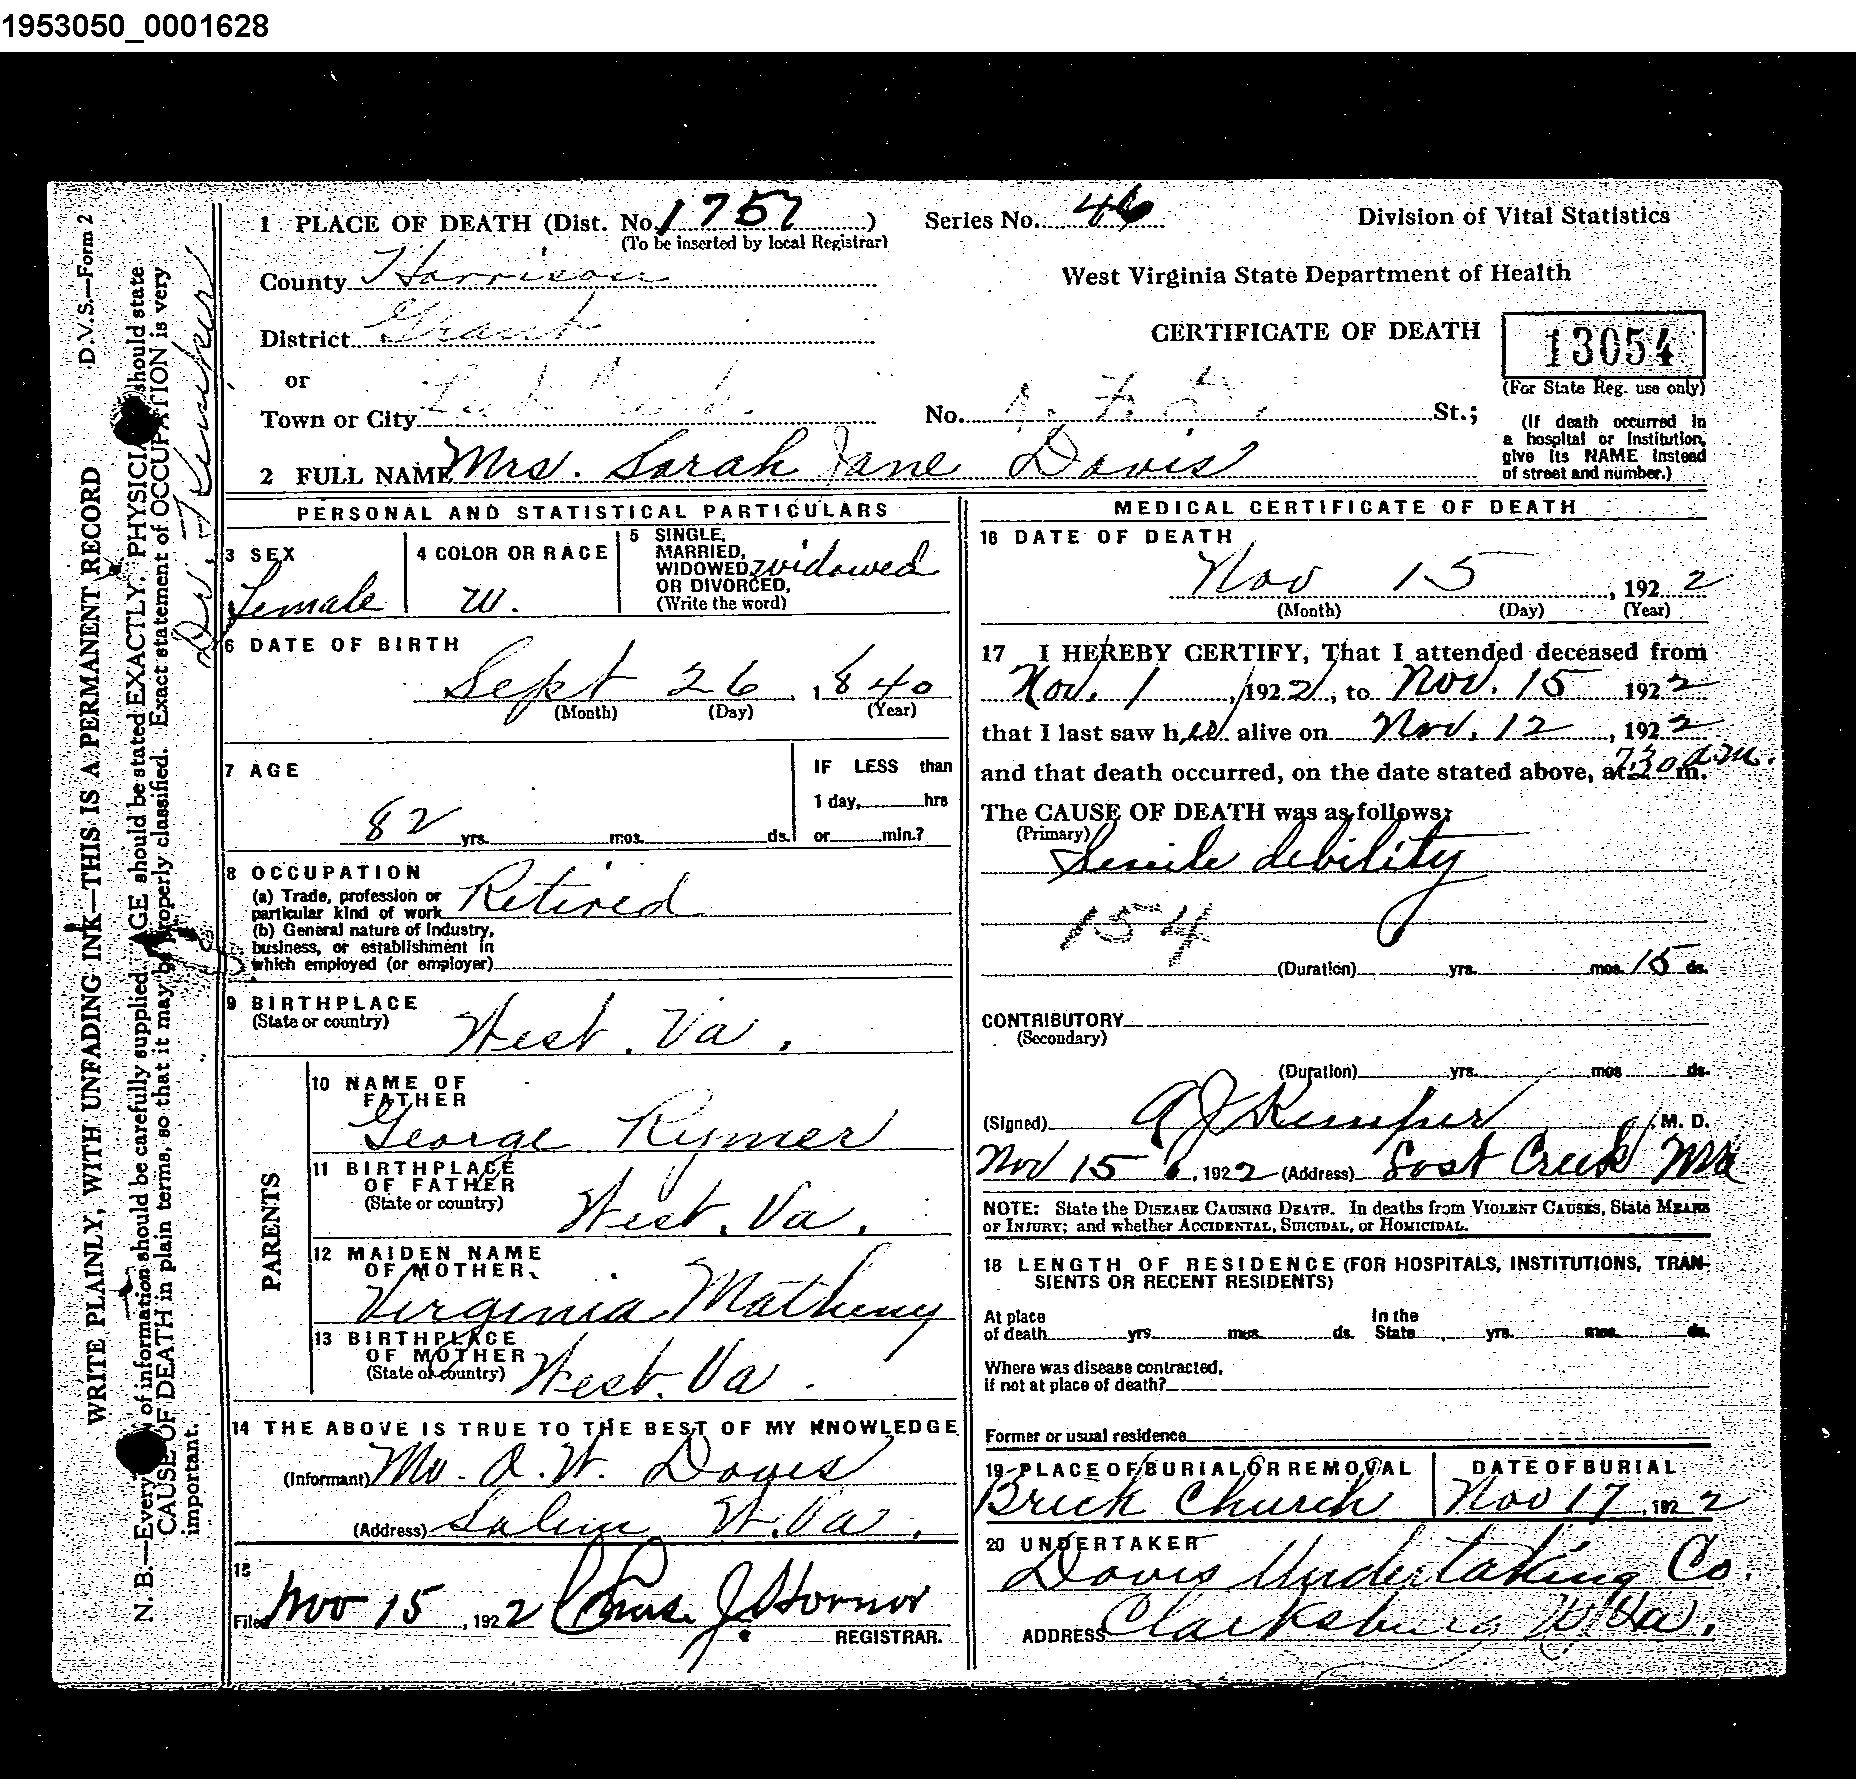 1953050_0001628
1 PLACE OF DEATH (Dist. No. 1757 ) Series No. 46 Division of Vital Statistics
(To be inserted by local Registrar)
County Harrison West Virginia State Department of Health
District Grant CERTIFICATE OF DEATH 13054
(For State Reg. use only)
or
Town or City Lost Creek No. R. F. D. St.;
(If death occurred in
a hospital or institution,
give its NAME instead
of street and number.)
2 FULL NAME Mrs. Sarah Jane Davis
PERSONAL AND STATISTICAL PARTICULARS
3 SEX
Female
4 COLOR OR RACE
W.
5 SINGLE,
MARRIED,
WIDOWED, widowed
OR DIVORCED,
(Write the word)
6 DATE OF BIRTH
Sept 26, 1840
(Month) (Day) (Year)
7 AGE
82 yrs. mos. ds.
IF LESS than
1 day, hrs
or min.?
8 OCCUPATION
(a) Trade, profession or
particular kind of work Retired
(b) General nature of industry,
business, or establishment in
which employed (or employer)
9 BIRTHPLACE
(State or country) West. Va.
PARENTS
10 NAME OF
FATHER
George Rymer
11 BIRTHPLACE
OF FATHER
(State or country) West. Va.
12 MAIDEN NAME
OF MOTHER
Virginia Matheny
13 BIRTHPLACE
OF MOTHER
(State or country) West. Va.
14 THE ABOVE IS TRUE TO THE BEST OF MY KNOWLEDGE
(Informant) Mr. O. W. Davis
(Address) Salem W. Va.
15
Filed Nov 15, 1922 Chas. J. Hornor
REGISTRAR.
MEDICAL CERTIFICATE OF DEATH
16 DATE OF DEATH
Nov 15, 1922
(Month) (Day) (Year)
17 I HEREBY CERTIFY, That I attended deceased from
Nov. 1, 1922, to Nov. 15 1922
that I last saw her alive on Nov. 12, 1922
and that death occurred, on the date stated above, at 7.30 a.m. m.
The CAUSE OF DEATH was as follows:
(Primary)
Senile debility
154
(Duration) yrs. mos. 15 ds.
CONTRIBUTORY
(Secondary)
(Duration) yrs. mos ds.
(Signed) A J Kemper M. D.
Nov 15, 1922 (Address) Lost Creek WVa
NOTE: State the DISEASE CAUSING DEATH. In deaths from VIOLENT CAUSES, State MEANS
OF INJURY; and whether ACCIDENTAL, SUICIDAL, or HOMICIDAL.
18 LENGTH OF RESIDENCE (FOR HOSPITALS, INSTITUTIONS, TRAN-
SIENTS OR RECENT RESIDENTS)
At place
of death yrs. mos. ds.
In the
State yrs. mos. ds.
Where was disease contracted,
if not at place of death?
Former or usual residence
19 PLACE OF BURIAL OR REMOVAL
Brick Church
DATE OF BURIAL
Nov 17, 1922
20 UNDERTAKER
Davis Undertaking Co.
ADDRESS Clarksburg W. Va.
D.V.S.—Form 2
WRITE PLAINLY, WITH UNFADING INK—THIS IS A PERMANENT RECORD
N. B.—Every of information should be carefully supplied. AGE should be stated EXACTLY. PHYSICIA should state
CAUSE OF DEATH in plain terms, so that it may be properly classified. Exact statement of OCCUPATION is very
important.
Dr. Kemper